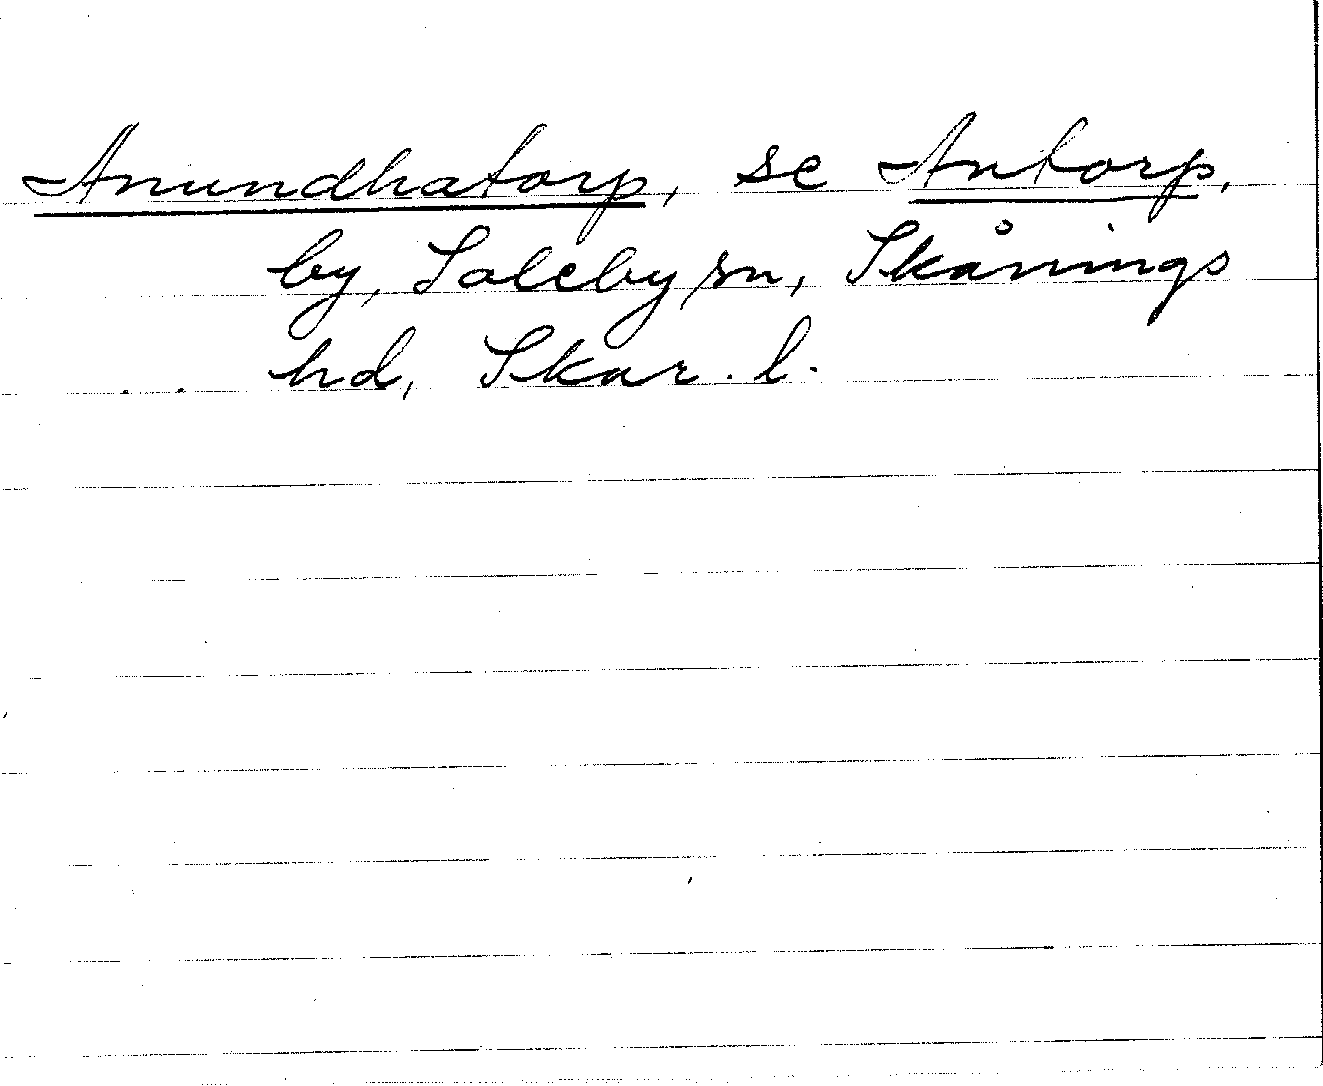 Anundhatorp, se Antorp,
by, Saleby sn, Skånings
hd, Skar. l.